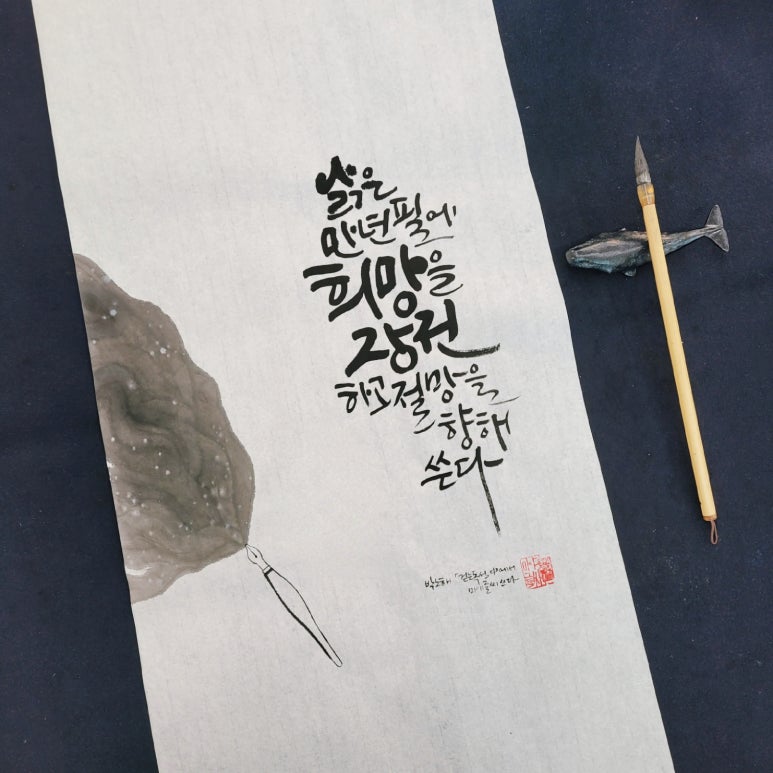 낡은
만년필에
희망을
장전
하고 절망을
향해
쓴다
박노해 「걷는 독서」 에서
글씨 쓰다